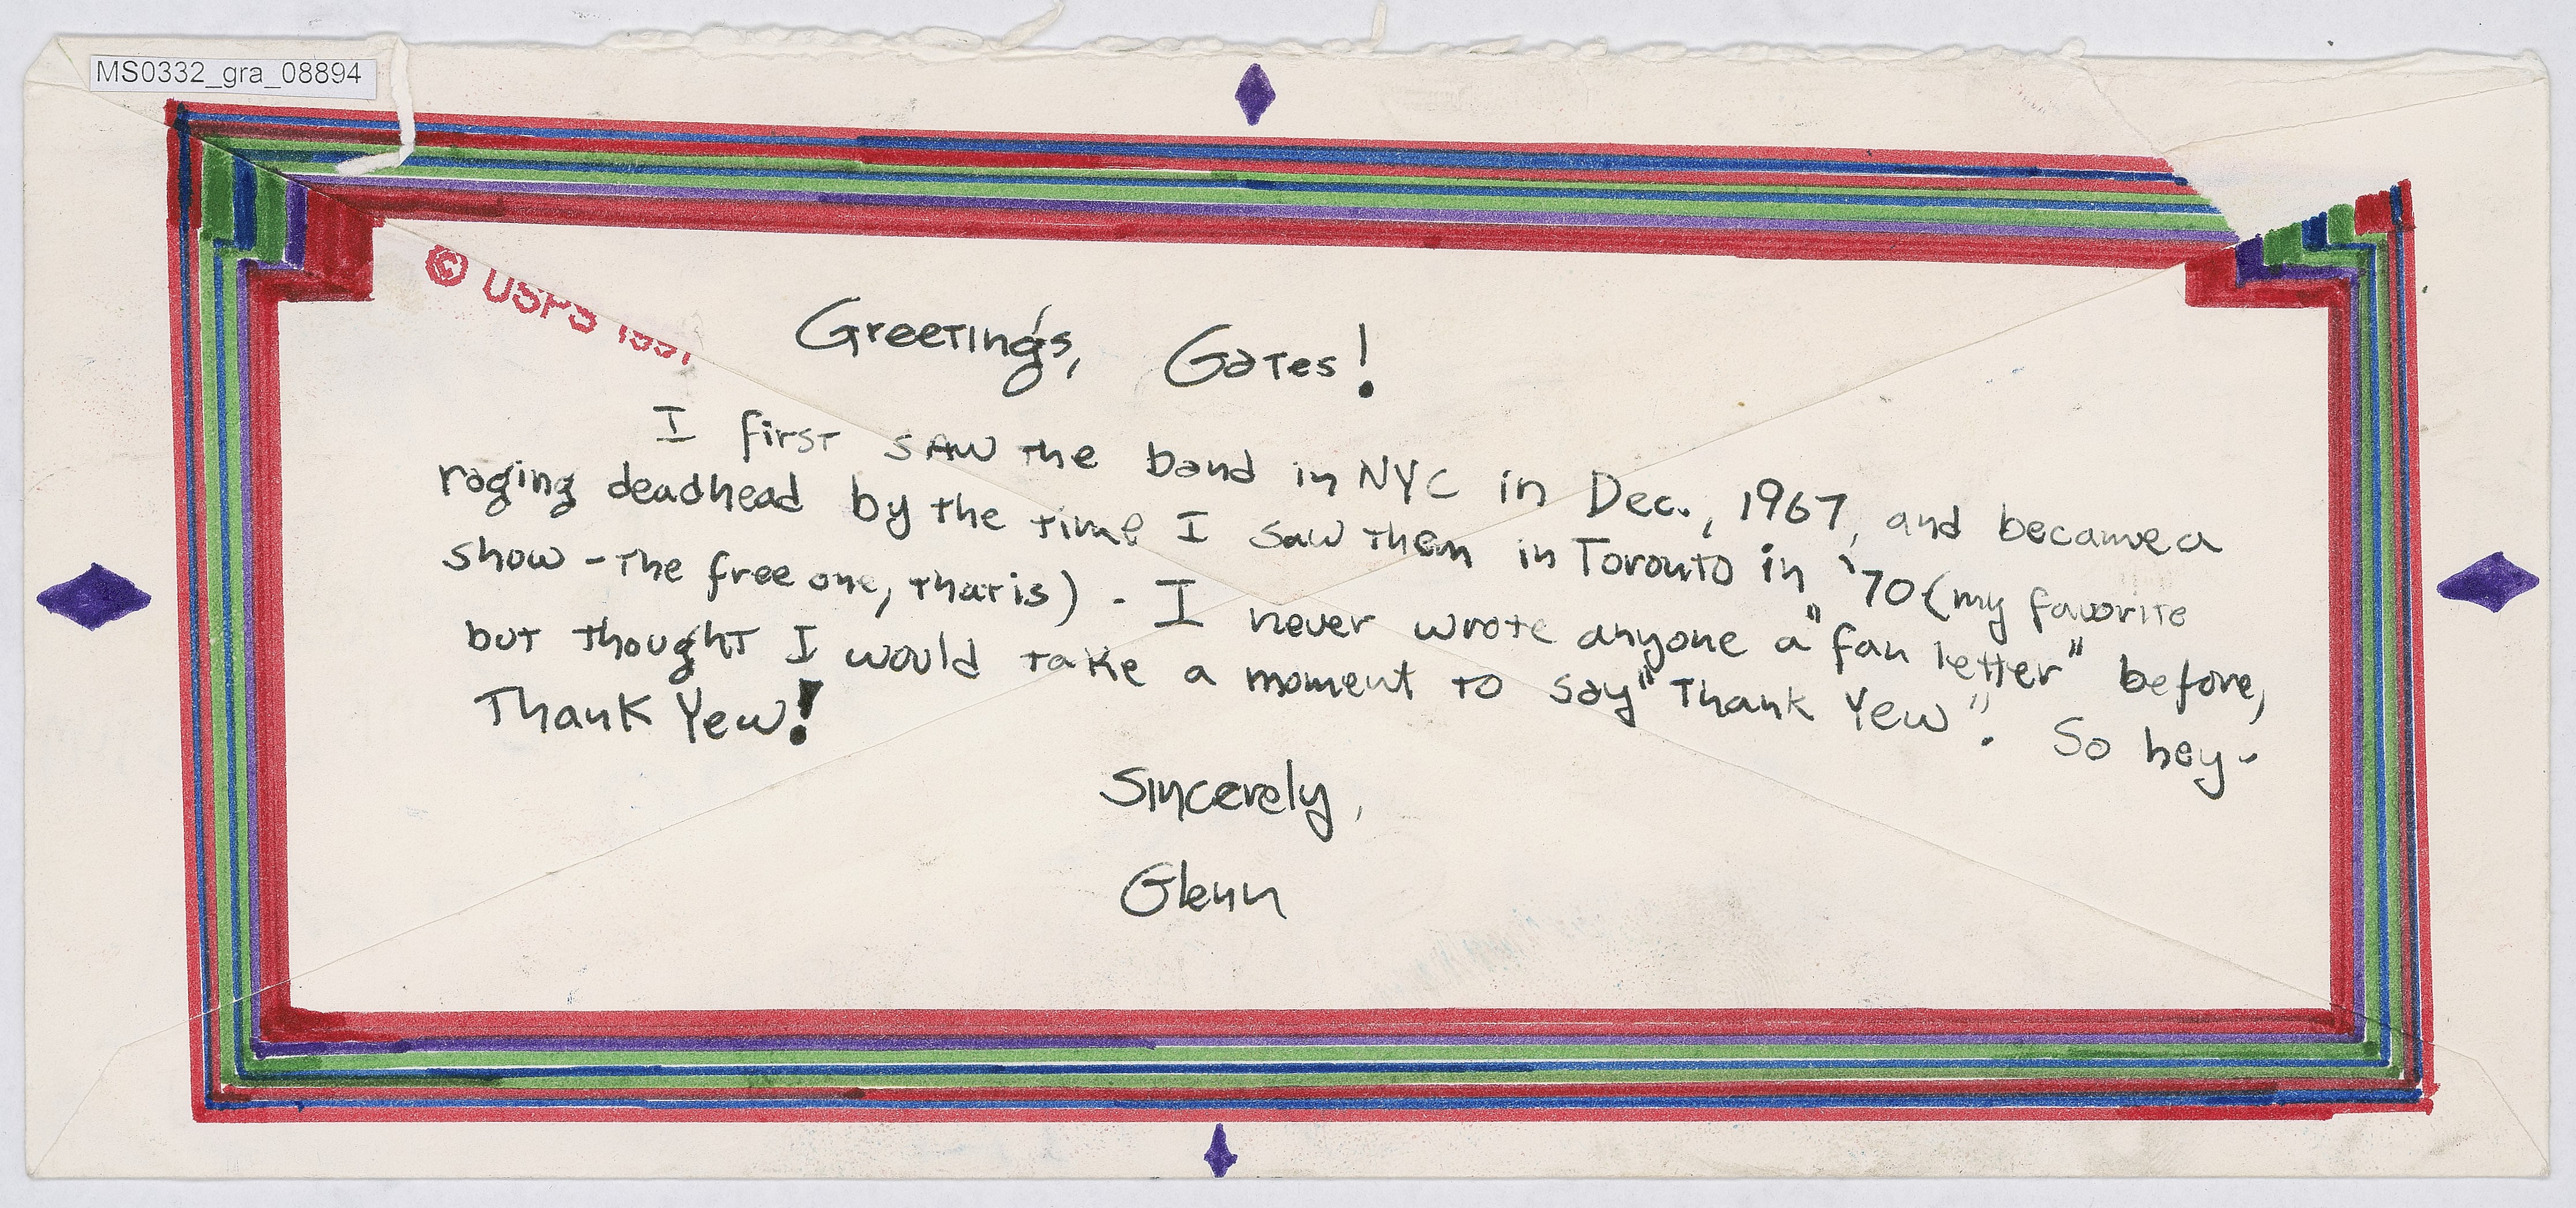 MS0332_gra_08894
© USPS 1997
Greetings, Gates!
I first saw the band in NYC in Dec., 1967, and became a
raging deadhead by the time I saw them in Toronto in '70 (my favorite
show - the free one, that is) - I never wrote anyone a "fan letter" before,
but thought I would take a moment to say "Thank Yew". So hey -
Thank Yew!
Sincerely,
Glenn